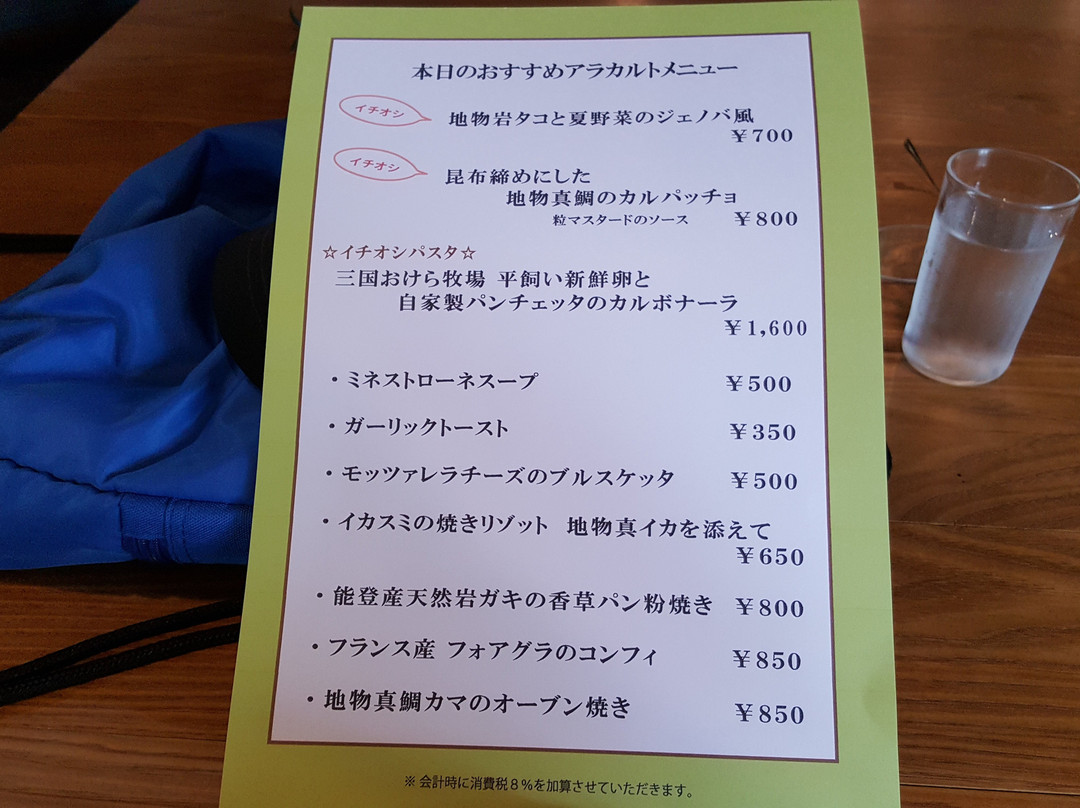 本日のおすすめアラカルトメニュー
イチオシ
地物岩タコと夏野菜のジェノバ風
￥700
イチオシ
昆布締めにした
地物真鯛のカルパッチョ
粒マスタードのソース ￥800
☆イチオシパスタ☆
三国おけら牧場 平飼い新鮮卵と
自家製パンチェッタのカルボナーラ
￥1,600
・ミネストローネスープ ￥500
・ガーリックトースト ￥350
・モッツァレラチーズのブルスケッタ ￥500
・イカスミの焼きリゾット 地物真イカを添えて
￥650
・能登産天然岩ガキの香草パン粉焼き ￥800
・フランス産 フォアグラのコンフィ ￥850
・地物真鯛カマのオーブン焼き ￥850
※ 会計時に消費税８％を加算させていただきます。